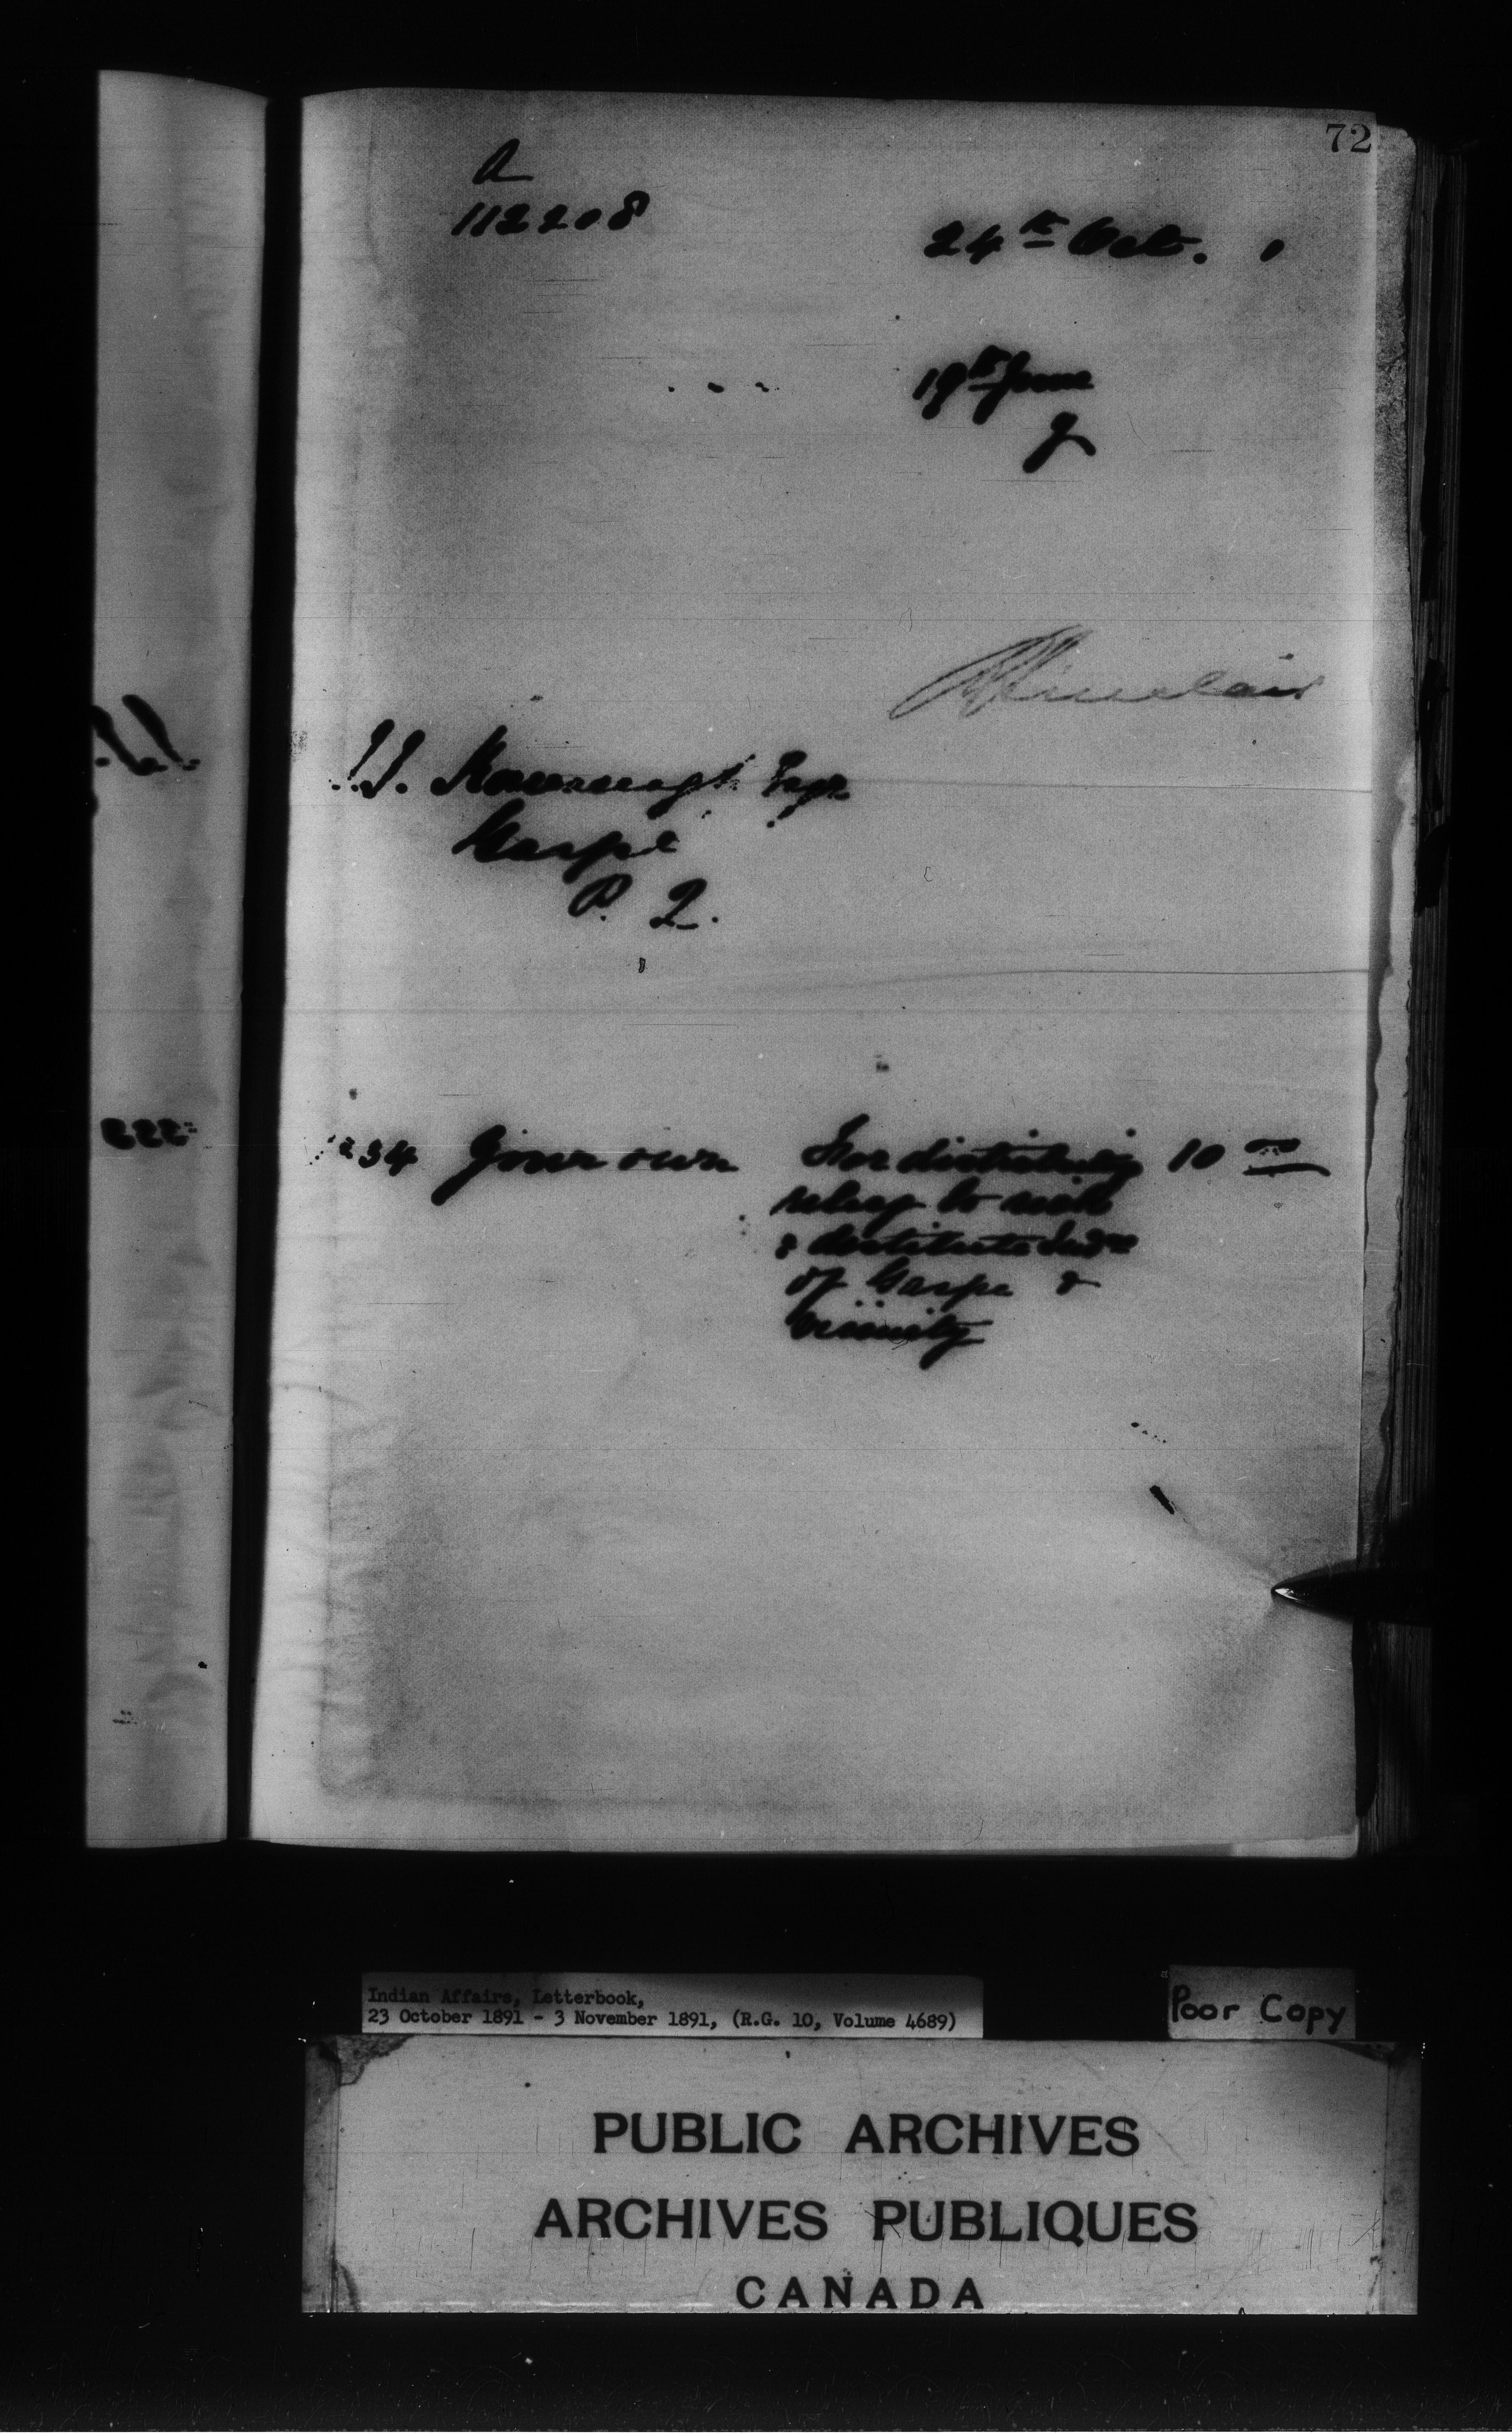 72
A
112208
24th Oct. 1
19th June
J. J. Kavanagh Esqr
Gaspé
P. Q.
1234 Your own For distributing 10 00
relief to sick
& destitute Inds
of Gaspe &
vicinity
Indian Affairs, Letterbook,
23 October 1891 - 3 November 1891, (R.G. 10, Volume 4689)
Poor Copy
PUBLIC ARCHIVES
ARCHIVES PUBLIQUES
CANADA